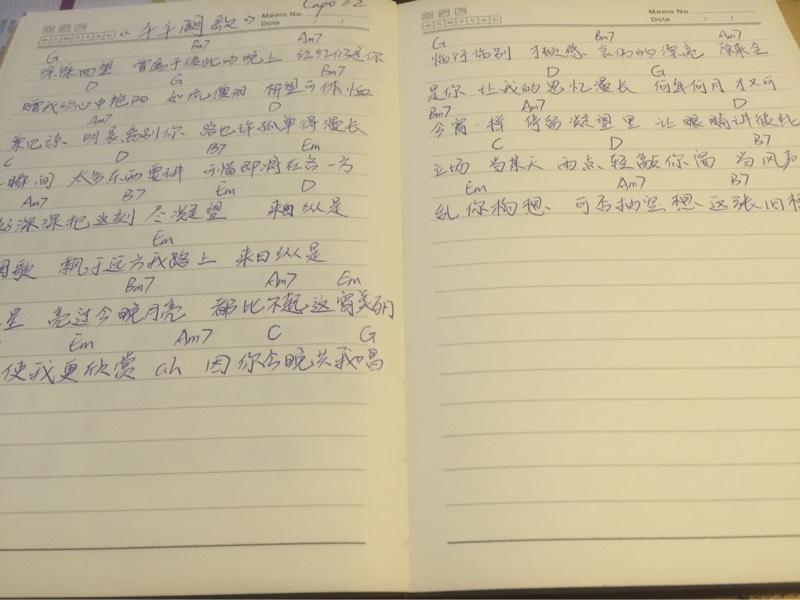 Capo=2
Memo No.
《千千阙歌》 Date / /
G Bm7 Am7
徐徐回望 曾属于彼此的晚上 红红仍是你
D G Bm7
赠我的心中艳阳 如流傻泪 祈望可体恤
Am7 D
兼见谅 明晨离别你 路也许孤单得漫长
C D B7 Em
一瞬间 太多东西要讲 可惜即将在各一方
Am7 B7 Em D
好深深把这刻 尽凝望 来日纵是
Em
阕歌 飘于远方我路上 来日纵是
Bm7 Am7 Em
星 亮过今晚月亮 都比不起这宵美丽
Em Am7 C G
使我更欣赏 ah 因你今晚共我唱
Memo No.
Date / /
G Bm7 Am7
临行临别 才顿感 哀伤的漂亮 原来全
D G
是你 让我的思忆漫长 何年何月 才又可
Bm7 Am7 D
今宵一样 停留凝望里 让眼睛讲彼此
C D B7
立场 当某天 雨点轻敲你窗 当风声
Em Am7 B7
乱你构想、可否抽空想、这张旧模